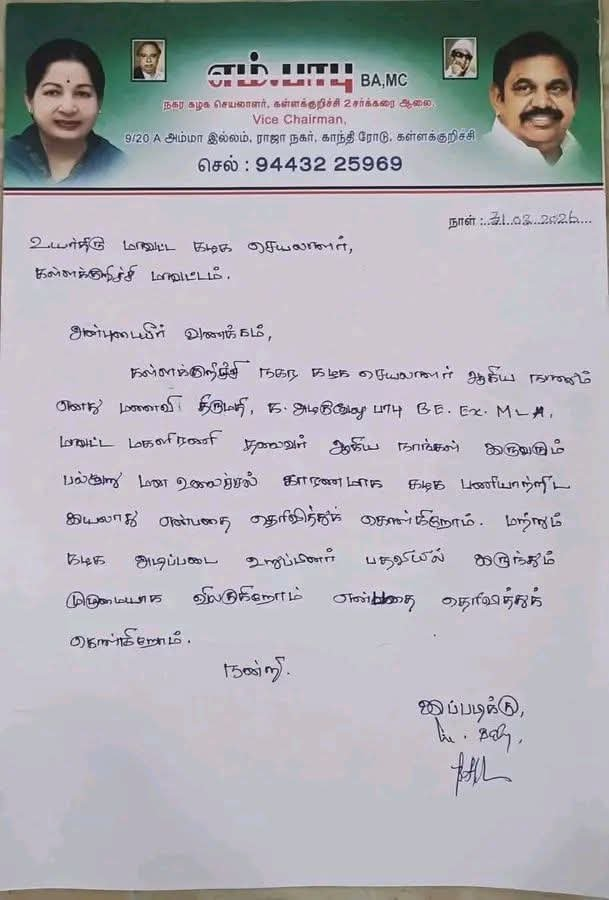 எம்.பாபு BA,MC
நகர கழக செயலாளர், கள்ளக்குறிச்சி 2 சர்க்கரை ஆலை,
Vice Chairman,
9/20 A அம்மா இல்லம், ராஜா நகர், காந்தி ரோடு, கள்ளக்குறிச்சி
செல் : 94432 25969
நாள் : 31.03.2026
உயர்திரு மாவட்ட கழக செயலாளர்,
கள்ளக்குறிச்சி மாவட்டம்.
அன்புடையீர் வணக்கம்,
கள்ளக்குறிச்சி நகர கழக செயலாளர் ஆகிய நானும்
எனது மனைவி திருமதி, க. அழகுவேலு பாபு BE. Ex. MLA,
மாவட்ட மகளிரணி தலைவர் ஆகிய நாங்கள் இருவரும்
பல்வேறு மன உலைச்சல் காரணமாக கழக பணியாற்றிட
இயலாது என்பதை தெரிவித்துக் கொள்கிறோம். மற்றும்
கழக அடிப்படை உறுப்பினர் பதவியில் இருந்தும்
முழுமையாக விலகுகிறோம் என்பதை தெரிவித்துக்
கொள்கிறோம்.
நன்றி.
இப்படிக்கு,